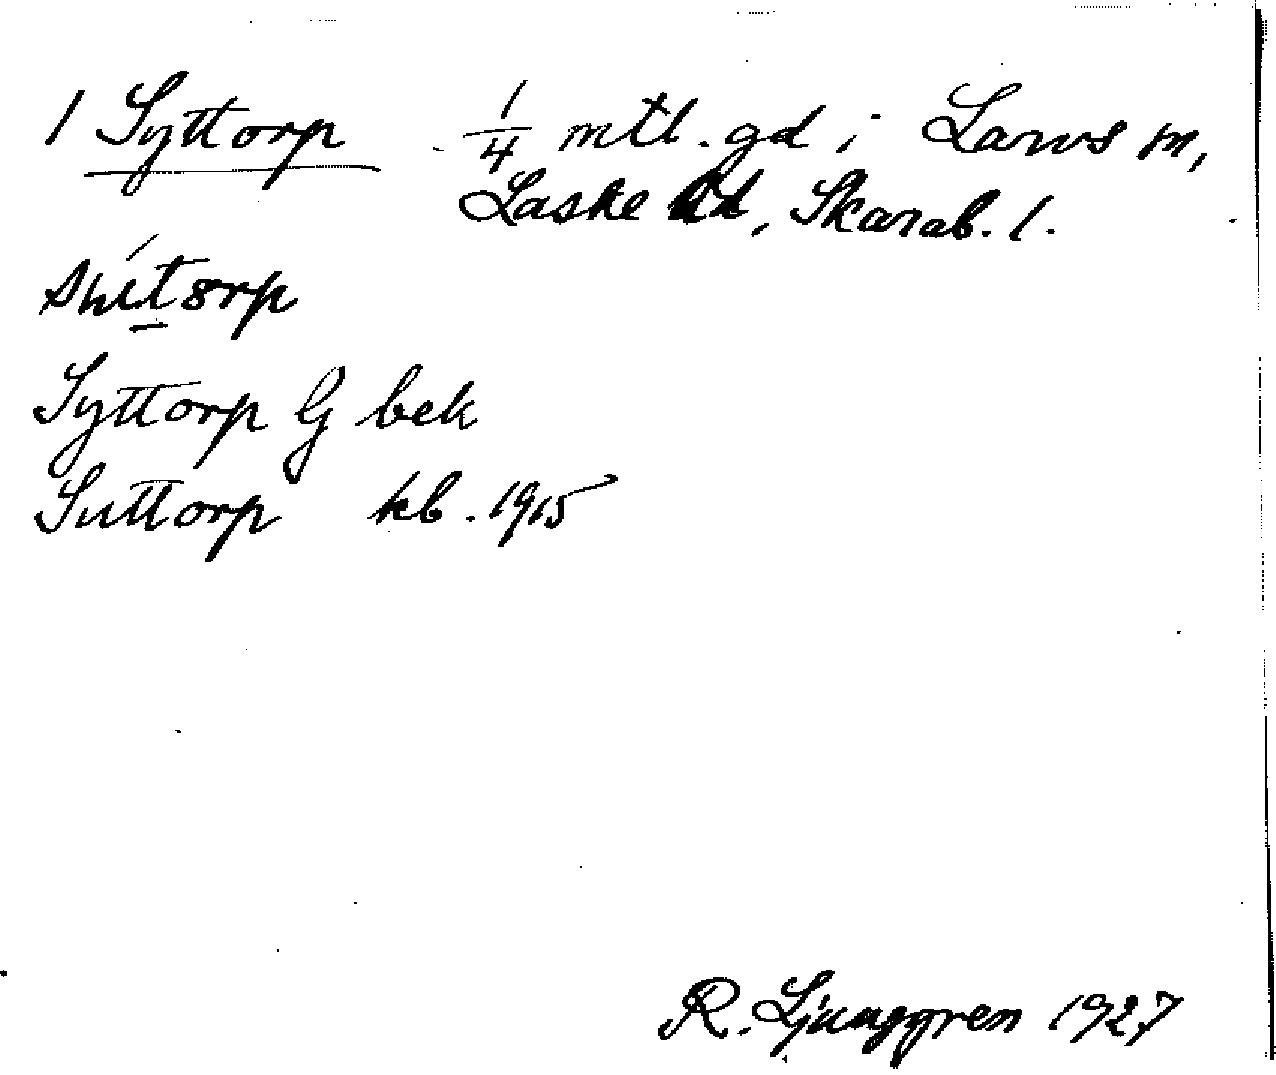 1 Syttorp 1/4 mtl. gd i Larvs sn,
Laske hd, Skarab. l.
Syttorp G bek
Suttorp kb. 1915
R. Ljunggren 1927